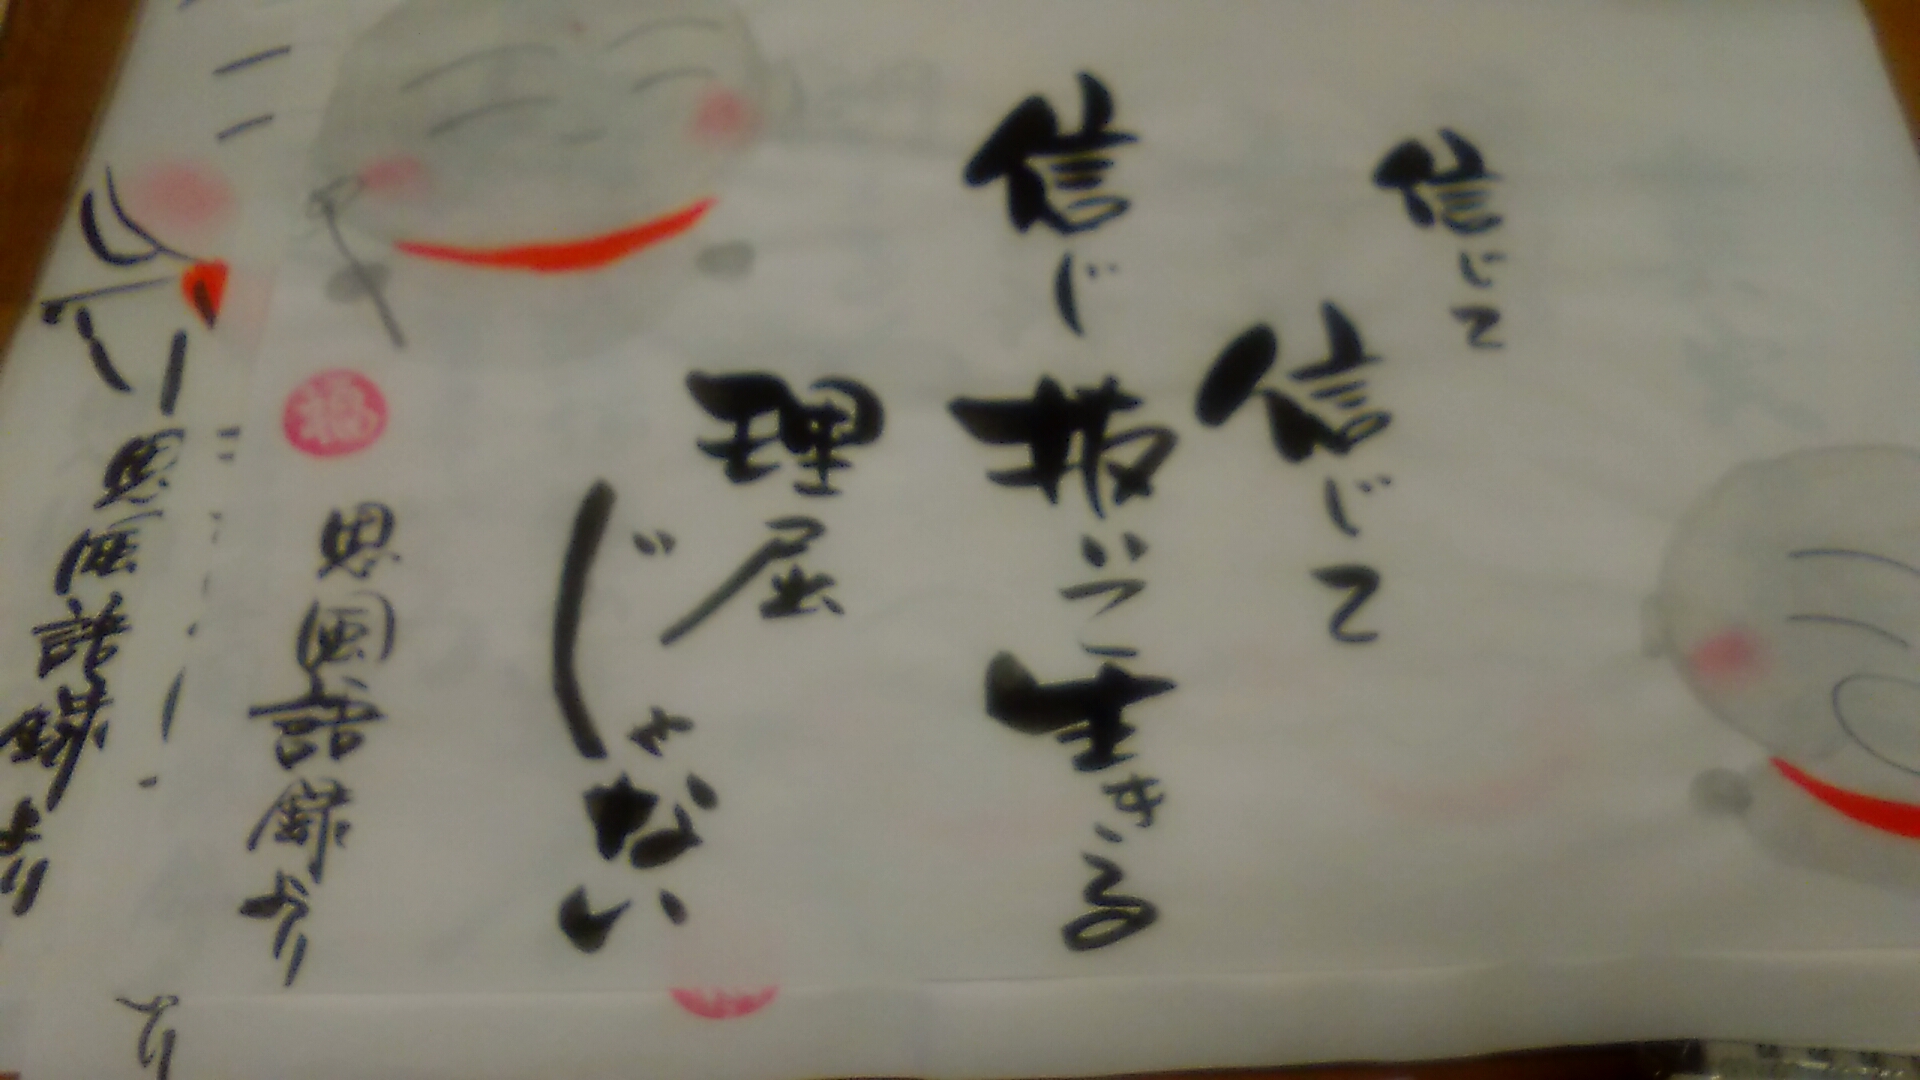 信じて
信じて
信じ抜いて生きる
理屈
じゃない
思風語録より
思風語録より
より